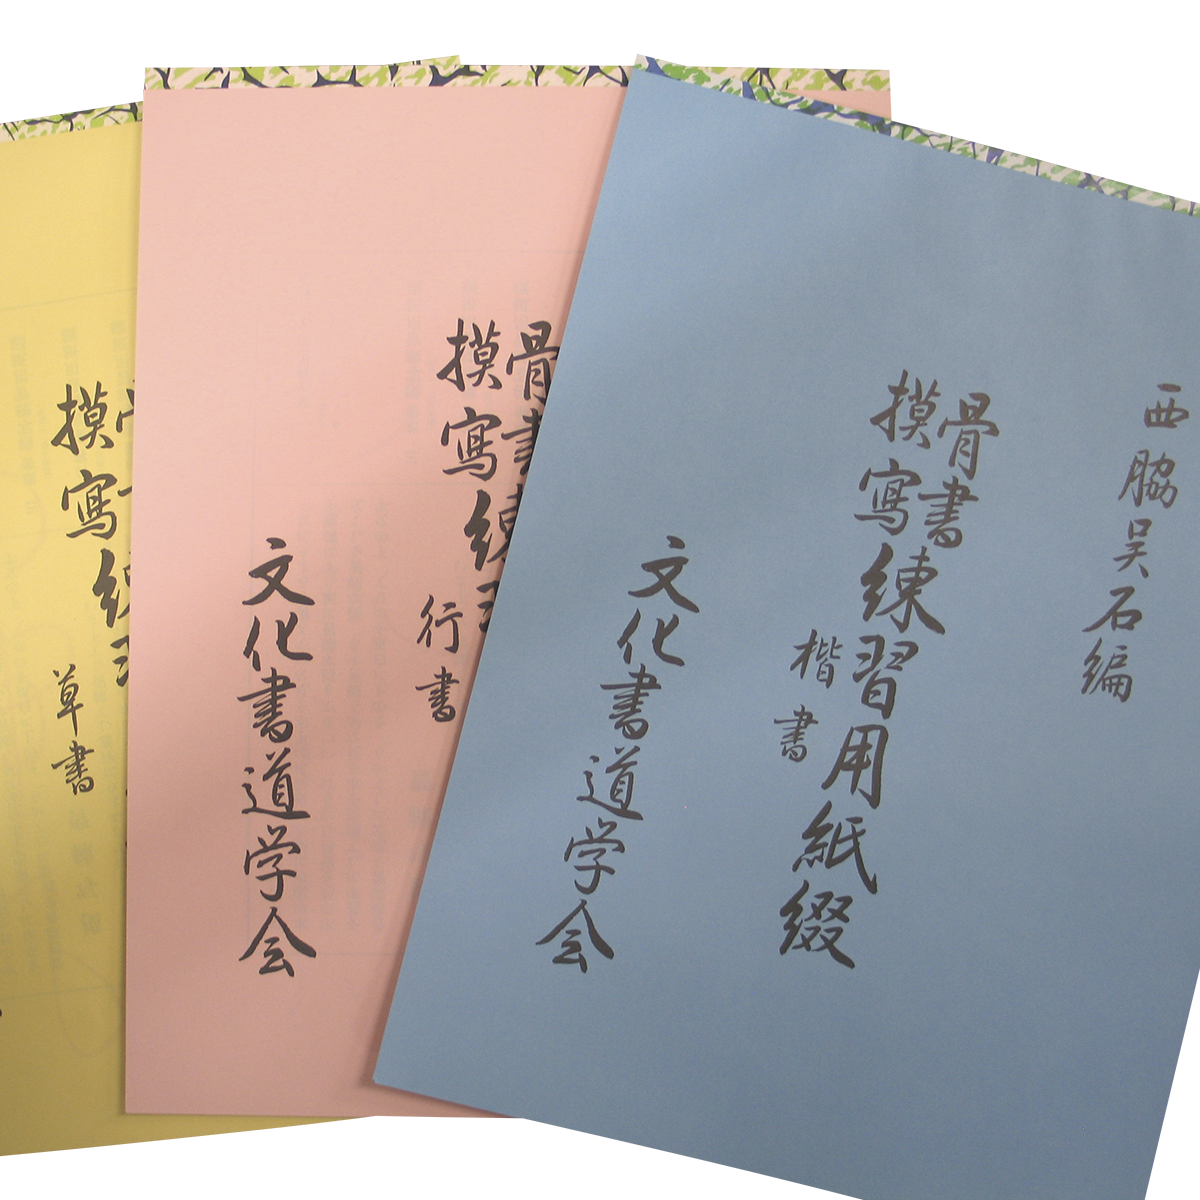 西脇呉石編
骨書
摸寫練習用紙綴
楷書
文化書道学会
骨書
摸寫練
行書
文化書道学会
摸寫練
草書